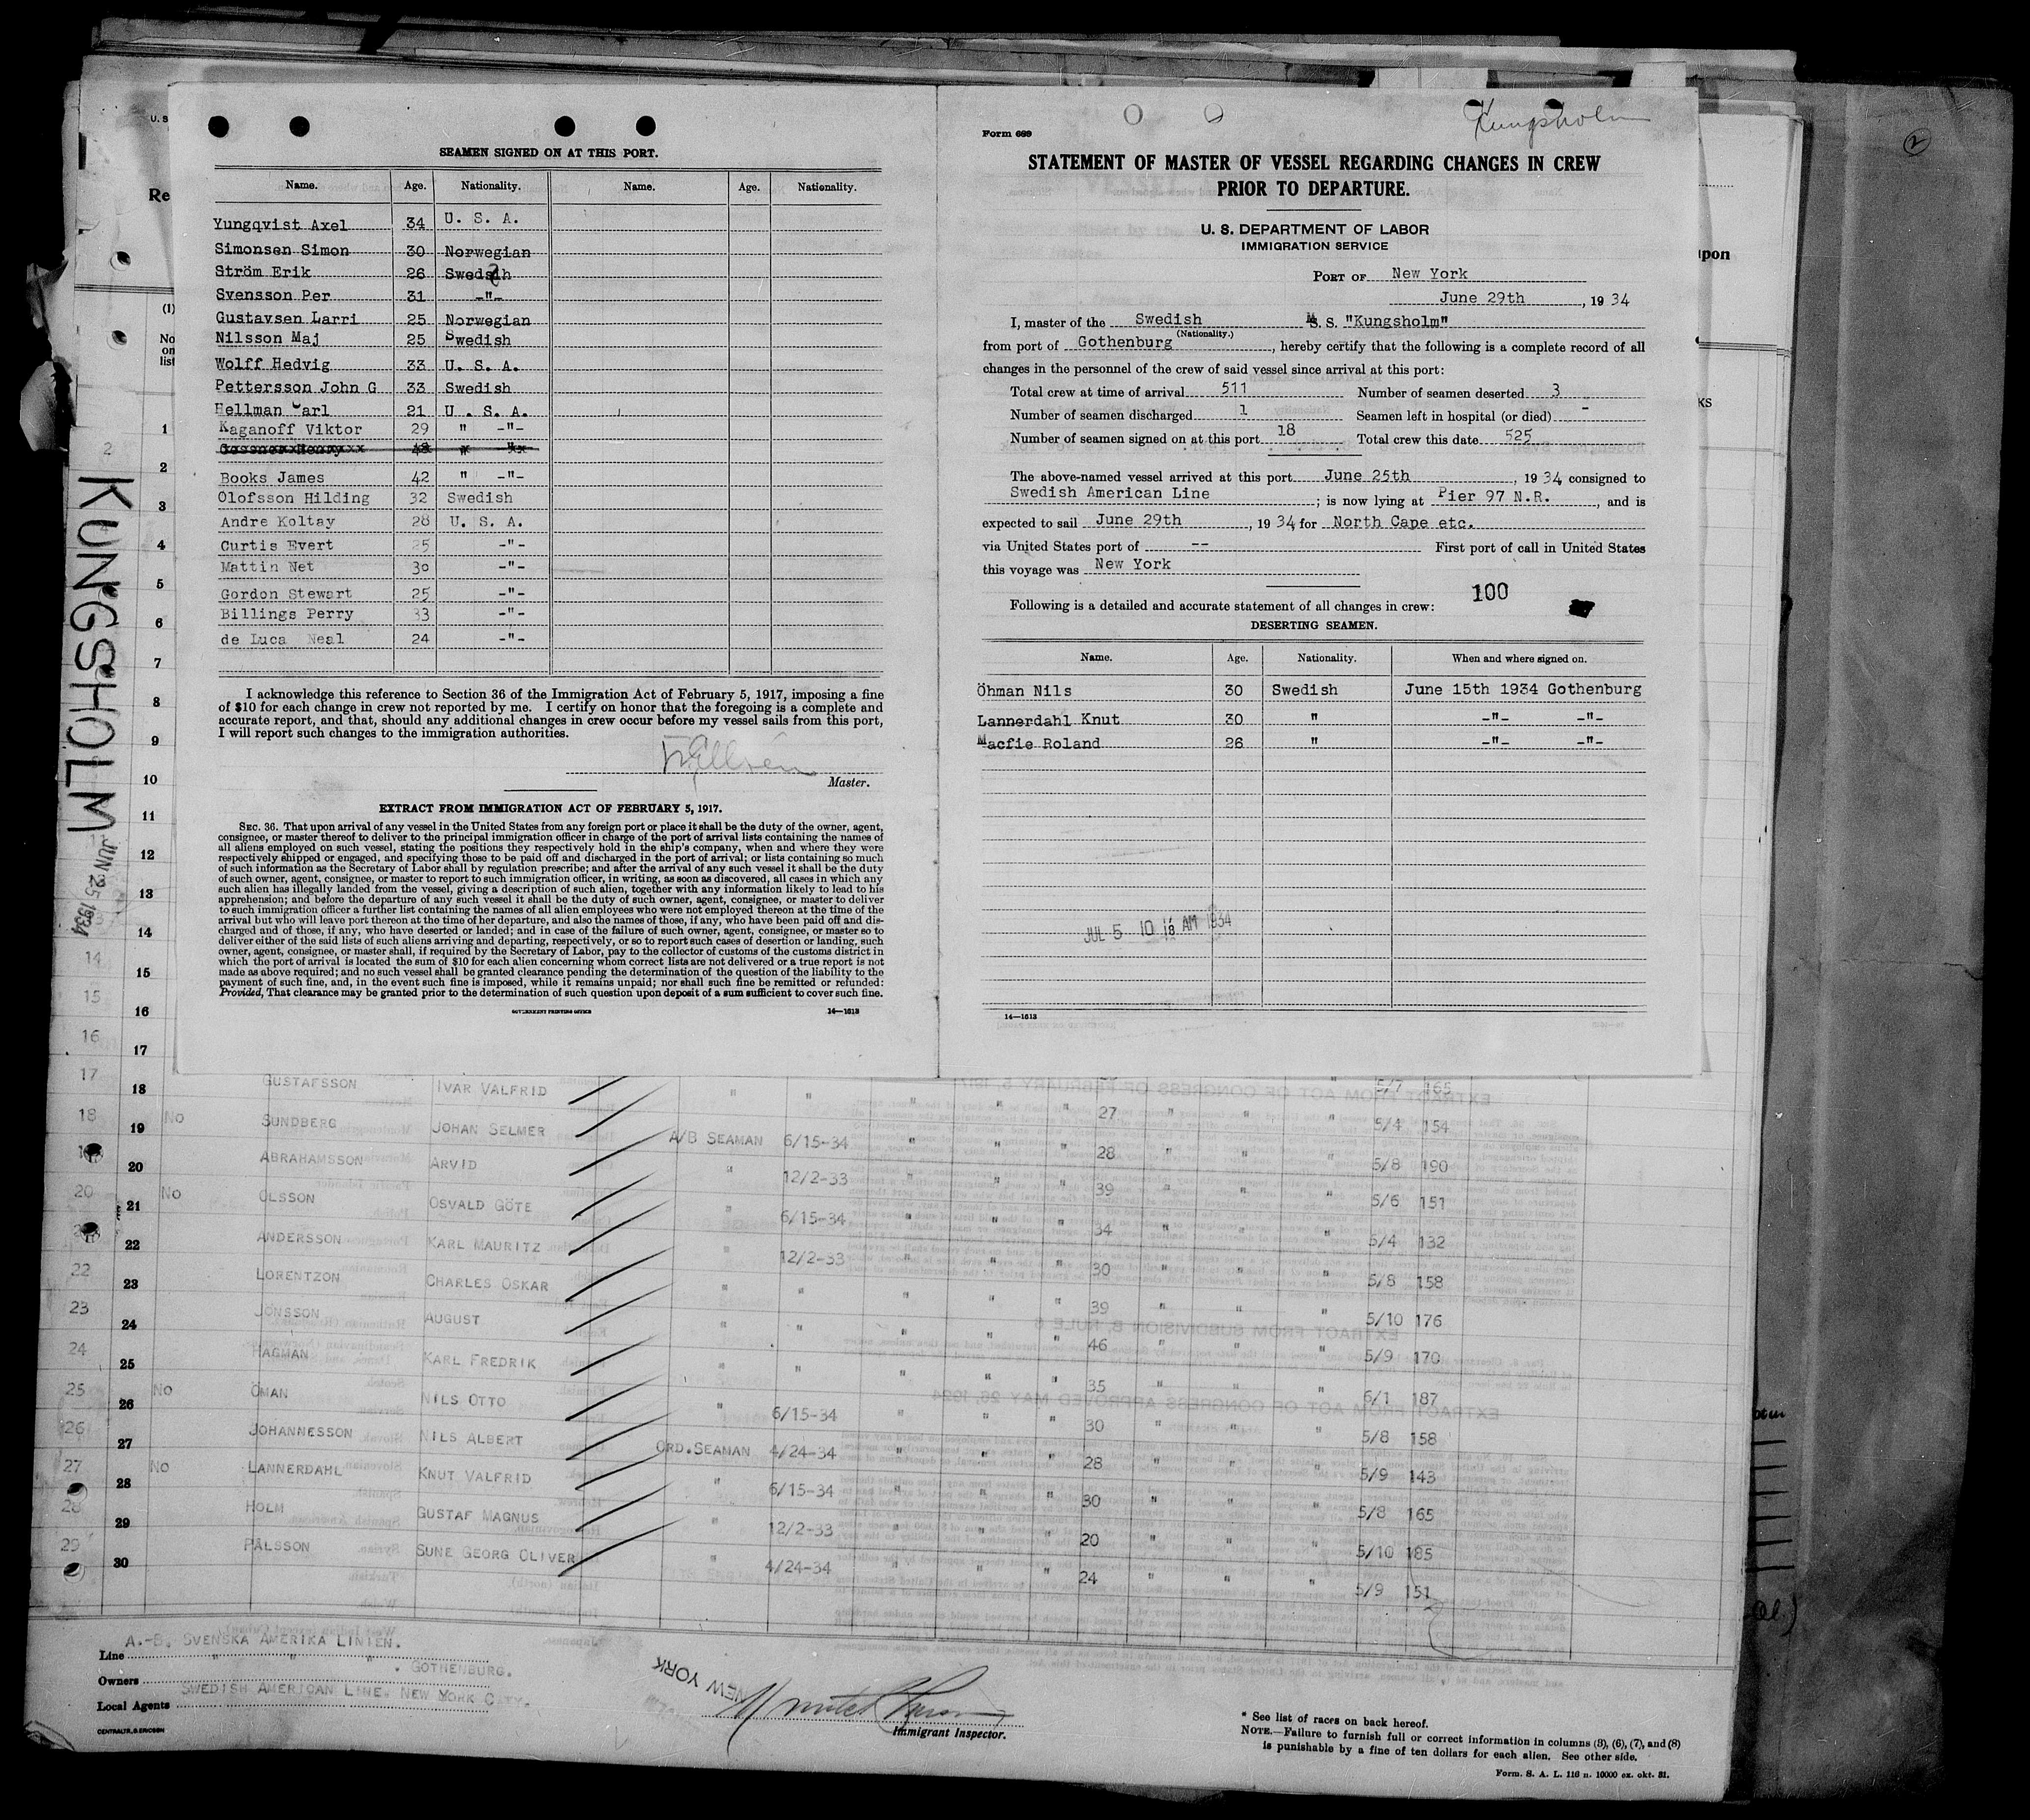 SEAMEN SIGNED ON AT THIS PORT.
Name. Age. Nationality. Name. Age. Nationality.
Yungqvist Axel 34 U. S. A.
Simonsen Simon 30 Norwegian
Ström Erik 26
Svensson Per 31 -"-
Gustavsen Larri 25 Norwegian
Nilsson Maj 25 Swedish
Wolff Hedvig 33 U. S. A.
Pettersson John G 33 Swedish
Hellman Carl 21 U. S. A.
Kaganoff Viktor 29 " -"-
Books James 42 " -"-
Olofsson Hilding 32 Swedish
Andre Koltay 28 U. S. A.
Curtis Evert 25 -"-
Mattin Net 30 -"-
Gordon Stewart 25 -"-
Billings Perry 33 -"-
de Luca Neal 24 -"-
I acknowledge this reference to Section 36 of the Immigration Act of February 5, 1917, imposing a fine
of $10 for each change in crew not reported by me. I certify on honor that the foregoing is a complete and
accurate report, and that, should any additional changes in crew occur before my vessel sails from this port,
I will report such changes to the immigration authorities.
Master.
EXTRACT FROM IMMIGRATION ACT OF FEBRUARY 5, 1917.
SEC. 36. That upon arrival of any vessel in the United States from any foreign port or place it shall be the duty of the owner, agent,
consignee, or master thereof to deliver to the principal immigration officer in charge of the port of arrival lists containing the names of
all aliens employed on such vessel, stating the positions they respectively hold in the ship's company, when and where they were
respectively shipped or engaged, and specifying those to be paid off and discharged in the port of arrival; or lists containing so much
of such information as the Secretary of Labor shall by regulation prescribe; and after the arrival of any such vessel it shall be the duty
of such owner, agent, consignee, or master to report to such immigration officer, in writing, as soon as discovered, all cases in which any
such alien has illegally landed from the vessel, giving a description of such alien, together with any information likely to lead to his
apprehension; and before the departure of any such vessel it shall be the duty of such owner, agent, consignee, or master to deliver
to such immigration officer a further list containing the names of all alien employees who were not employed thereon at the time of the
arrival but who will leave port thereon at the time of her departure, and also the names of those, if any, who have been paid off and dis-
charged and of those, if any, who have deserted or landed; and in case of the failure of such owner, agent, consignee, or master so to
deliver either of the said lists of such aliens arriving and departing, respectively, or so to report such cases of desertion or landing, such
owner, agent, consignee, or master shall, if required by the Secretary of Labor, pay to the collector of customs of the customs district in
which the port of arrival is located the sum of $10 for each alien concerning whom correct lists are not delivered or a true report is not
made as above required; and no such vessel shall be granted clearance pending the determination of the question of the liability to the
payment of such fine, and, in the event such fine is imposed, while it remains unpaid; nor shall such fine be remitted or refunded:
Provided, That clearance may be granted prior to the determination of such question upon deposit of a sum sufficient to cover such fine.
GOVERNMENT PRINTING OFFICE 14—1613
Kungsholm
Form 689
STATEMENT OF MASTER OF VESSEL REGARDING CHANGES IN CREW
PRIOR TO DEPARTURE.
U. S. DEPARTMENT OF LABOR
IMMIGRATION SERVICE
PORT OF New York
June 29th, 1934
I, master of the Swedish M. S. "Kungsholm"
(Nationality.)
from port of Gothenburg, hereby certify that the following is a complete record of all
changes in the personnel of the crew of said vessel since arrival at this port:
Total crew at time of arrival 511 Number of seamen deserted 3
Number of seamen discharged 1 Seamen left in hospital (or died) -
Number of seamen signed on at this port 18 Total crew this date 525
The above-named vessel arrived at this port June 25th, 1934 consigned to
Swedish American Line; is now lying at Pier 97 N.R., and is
expected to sail June 29th, 1934 for North Cape etc.
via United States port of -- First port of call in United States
this voyage was New York
100
Following is a detailed and accurate statement of all changes in crew:
DESERTING SEAMEN.
Name. Age. Nationality. When and where signed on.
Öhman Nils 30 Swedish June 15th 1934 Gothenburg
Lannerdahl Knut 30 " -"- -"-
Macfie Roland 26 " -"- -"-
JUL 5 10 18 AM 1934
14—1613
KUNGSHOLM
JUN 25 1934
17 18 GUSTAFSSON IVAR VALFRID " " " " " 27 " " " 5/7 165
18 No 19 SUNDBERG JOHAN SELMER A/B SEAMAN 6/15-34 " " " 28 " " " 5/4 154
20 ABRAHAMSSON ARVID " 12/2-33 " " " 39 " " " 5/8 190
20 No 21 OLSSON OSVALD GÖTE " 6/15-34 " " " 34 " " " 5/6 151
22 ANDERSSON KARL MAURITZ " 12/2-33 " " " 30 " " " 5/4 132
22 23 LORENTZON CHARLES OSKAR " " " " " 39 " " " 5/8 158
23 24 JÖNSSON AUGUST " " " " " 46 " " " 5/10 176
24 25 HAGMAN KARL FREDRIK " " " " " 35 " " " 5/9 170
25 No 26 ÖMAN NILS OTTO " 6/15-34 " " " 30 " " " 6/1 187
26 27 JOHANNESSON NILS ALBERT ORD.SEAMAN 4/24-34 " " " 28 " " " 5/8 158
27 No 28 LANNERDAHL KNUT VALFRID " 6/15-34 " " " 30 " " " 5/9 143
28 29 HOLM GUSTAF MAGNUS " 12/2-33 " " " 20 " " " 5/8 165
29 30 PÅLSSON SUNE GEORG OLIVER " 4/24-34 " " " 24 " " " 5/10 185
5/9 151
Line A.-B. SVENSKA AMERIKA LINIEN.
Owners " " " . GOTHENBURG.
Local Agents SWEDISH AMERICAN LINE. NEW YORK CITY.
CENTRALTR., G. ERICSON
NEW YORK
Immigrant Inspector.
* See list of races on back hereof.
NOTE.—Failure to furnish full or correct information in columns (3), (6), (7), and (8)
is punishable by a fine of ten dollars for each alien. See other side.
Form. S. A. L. 116 n. 10000 ex. okt. 31.